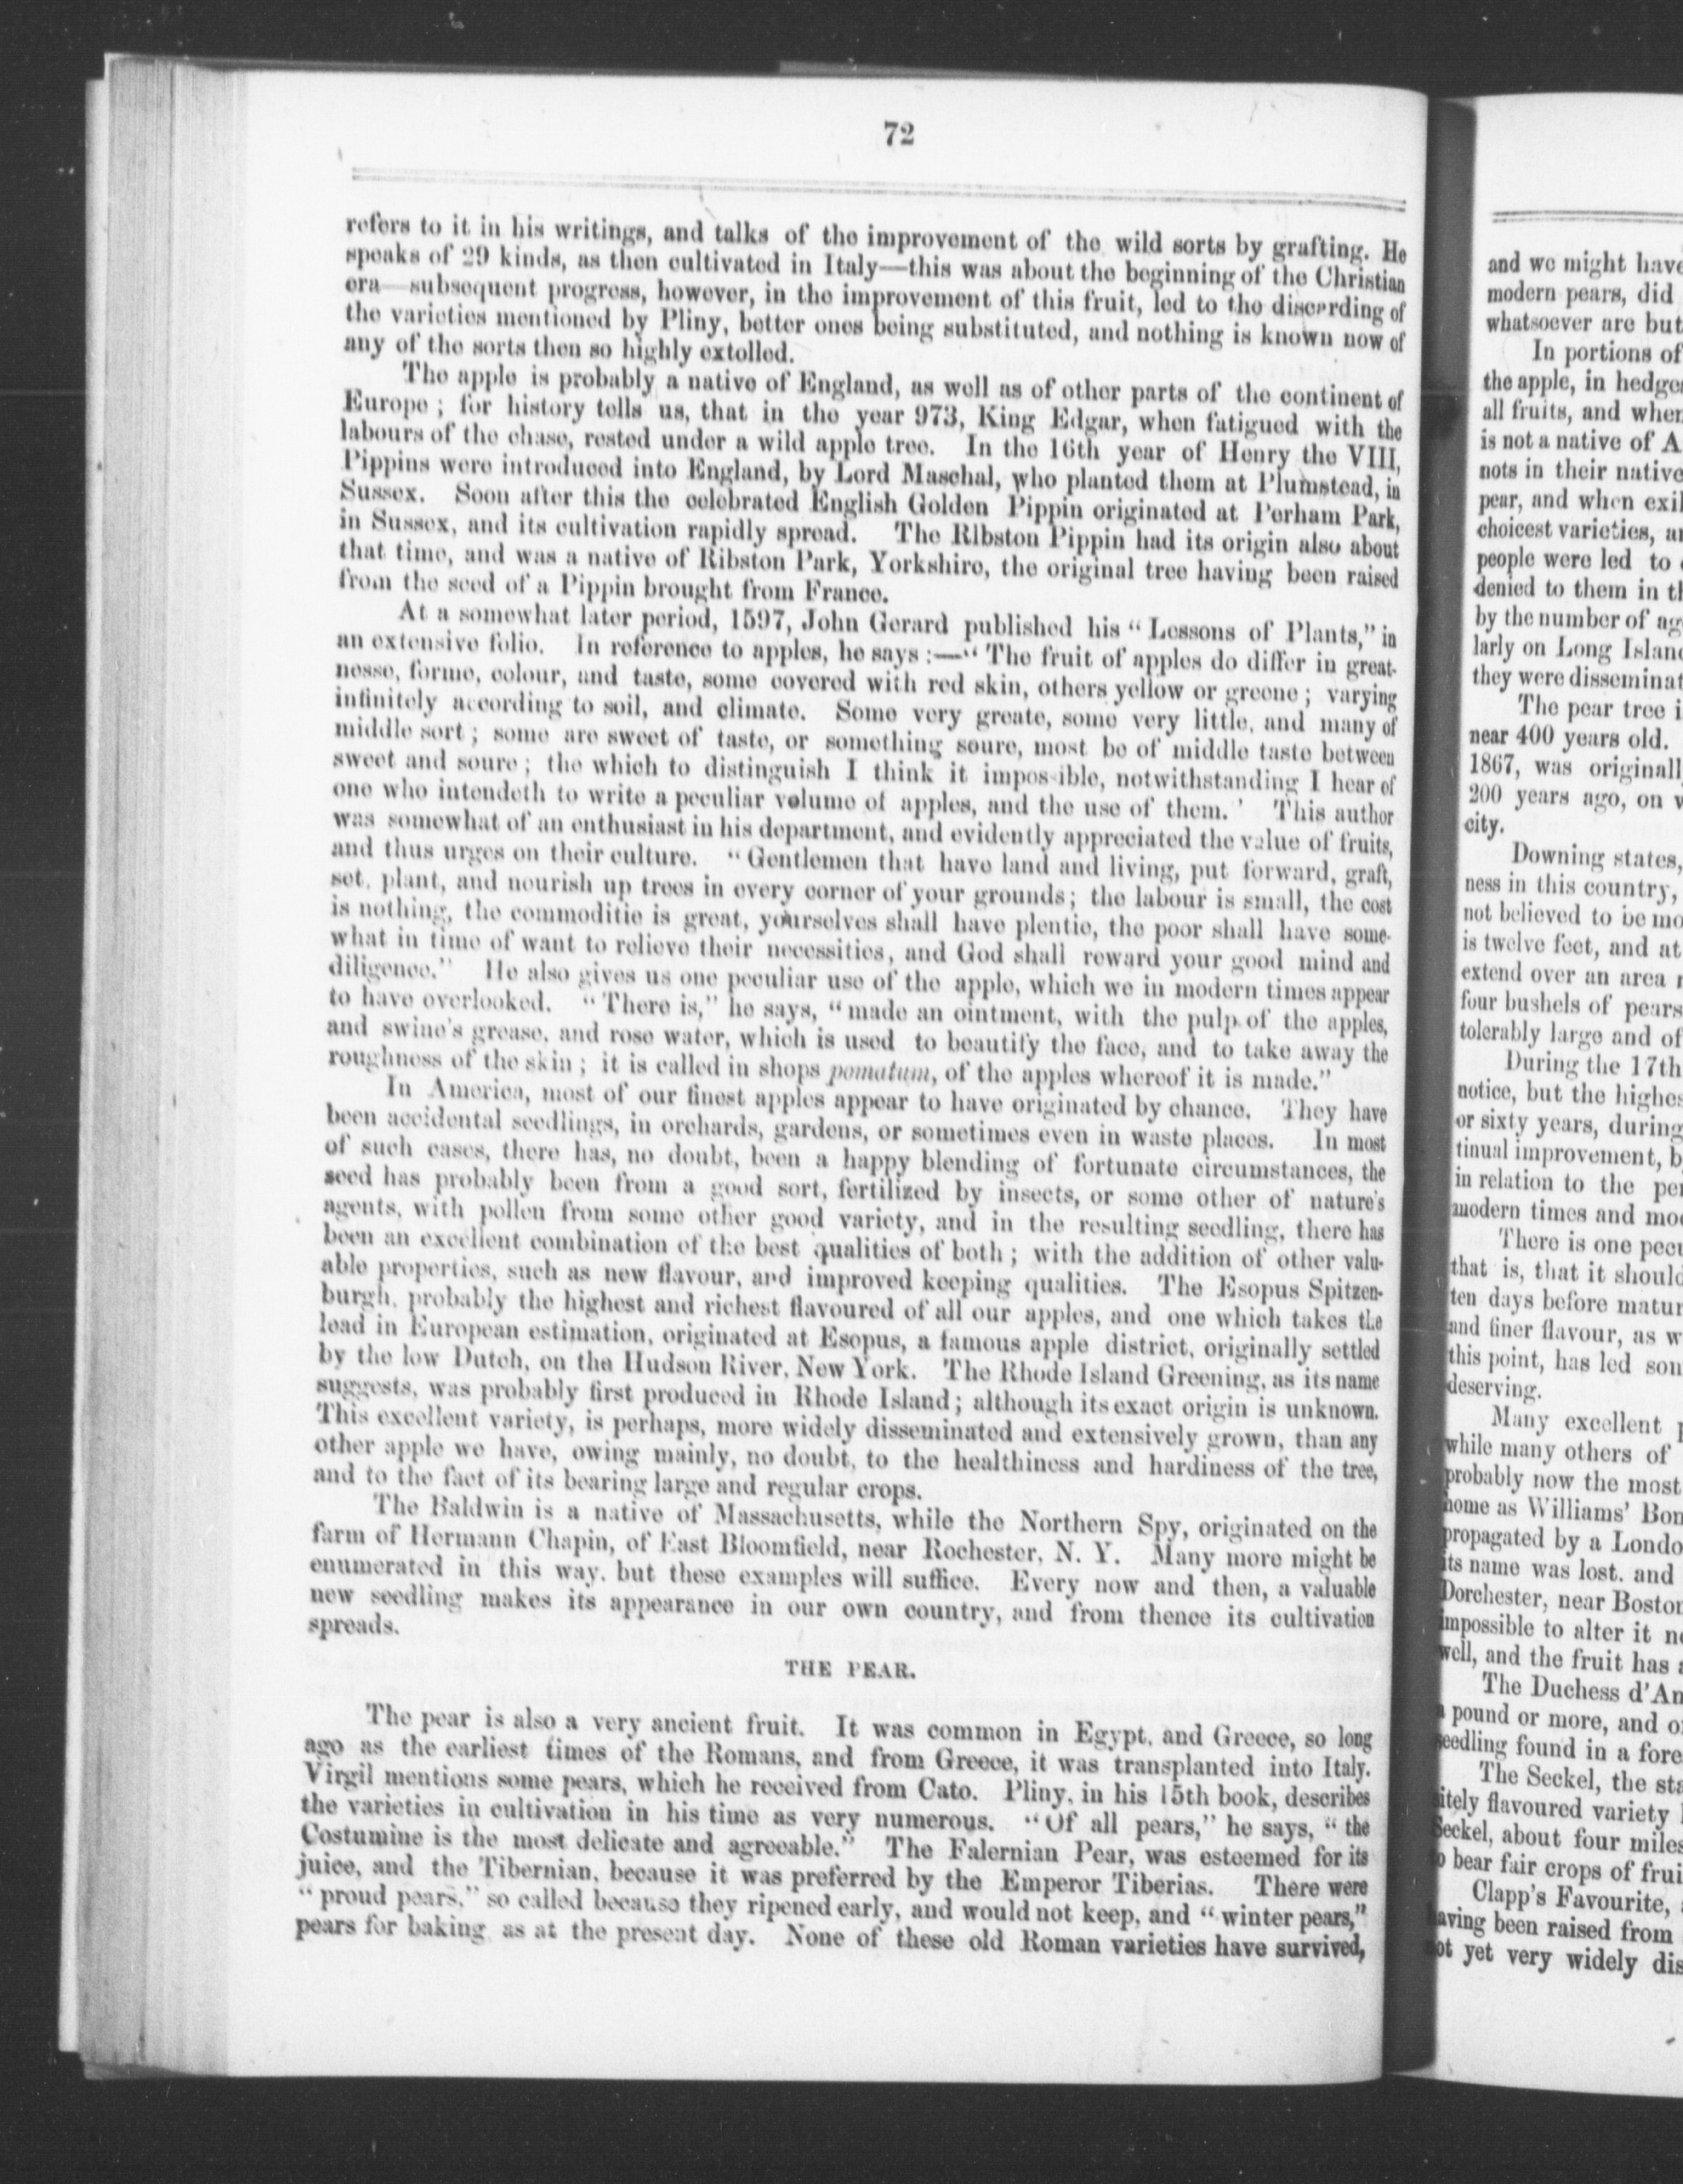 72
refers to it in his writings, and talks of the improvement of the wild sorts by grafting. He
speaks of 29 kinds, as then cultivated in Italy—this was about the beginning of the Christian
era—subsequent progress, however, in the improvement of this fruit, led to the discarding of
the varieties mentioned by Pliny, better ones being substituted, and nothing is known now of
any of the sorts then so highly extolled.
The apple is probably a native of England, as well as of other parts of the continent of
Europe; for history tells us, that in the year 973, King Edgar, when fatigued with the
labours of the chase, rested under a wild apple tree. In the 16th year of Henry the VIII,
Pippins were introduced into England, by Lord Maschal, who planted them at Plumstead, in
Sussex. Soon after this the celebrated English Golden Pippin originated at Perham Park,
in Sussex, and its cultivation rapidly spread. The Ribston Pippin had its origin also about
that time, and was a native of Ribston Park, Yorkshire, the original tree having been raised
from the seed of a Pippin brought from France.
At a somewhat later period, 1597, John Gerard published his "Lessons of Plants," in
an extensive folio. In reference to apples, he says:—"The fruit of apples do differ in great-
nesse, forme, colour, and taste, some covered with red skin, others yellow or greene; varying
infinitely according to soil, and climate. Some very greate, some very little, and many of
middle sort; some are sweet of taste, or something soure, most be of middle taste between
sweet and soure; the which to distinguish I think it impos ible, notwithstanding I hear of
one who intendeth to write a peculiar volume of apples, and the use of them.' This author
was somewhat of an enthusiast in his department, and evidently appreciated the value of fruits,
and thus urges on their culture. "Gentlemen that have land and living, put forward, graft,
set, plant, and nourish up trees in every corner of your grounds; the labour is small, the cost
is nothing, the commoditie is great, yourselves shall have plentie, the poor shall have some-
what in time of want to relieve their necessities, and God shall reward your good mind and
diligence." He also gives us one peculiar use of the apple, which we in modern times appear
to have overlooked. "There is," he says, "made an ointment, with the pulp of the apples,
and swine's grease, and rose water, which is used to beautify the face, and to take away the
roughness of the skin; it is called in shops pomatum, of the apples whereof it is made."
In America, most of our finest apples appear to have originated by chance. They have
been accidental seedlings, in orchards, gardens, or sometimes even in waste places. In most
of such cases, there has, no doubt, been a happy blending of fortunate circumstances, the
seed has probably been from a good sort, fertilized by insects, or some other of nature's
agents, with pollen from some other good variety, and in the resulting seedling, there has
been an excellent combination of the best qualities of both; with the addition of other valu-
able properties, such as new flavour, and improved keeping qualities. The Esopus Spitzen-
burgh, probably the highest and richest flavoured of all our apples, and one which takes the
lead in European estimation, originated at Esopus, a famous apple district, originally settled
by the low Dutch, on the Hudson River, New York. The Rhode Island Greening, as its name
suggests, was probably first produced in Rhode Island; although its exact origin is unknown.
This excellent variety, is perhaps, more widely disseminated and extensively grown, than any
other apple we have, owing mainly, no doubt, to the healthiness and hardiness of the tree,
and to the fact of its bearing large and regular crops.
The Baldwin is a native of Massachusetts, while the Northern Spy, originated on the
farm of Hermann Chapin, of East Bloomfield, near Rochester, N. Y. Many more might be
enumerated in this way, but these examples will suffice. Every now and then, a valuable
new seedling makes its appearance in our own country, and from thence its cultivation
spreads.
THE PEAR.
The pear is also a very ancient fruit. It was common in Egypt, and Greece, so long
ago as the earliest times of the Romans, and from Greece, it was transplanted into Italy.
Virgil mentions some pears, which he received from Cato. Pliny, in his 15th book, describes
the varieties in cultivation in his time as very numerous. "Of all pears," he says, "the
Costumine is the most delicate and agreeable." The Falernian Pear, was esteemed for its
juice, and the Tibernian, because it was preferred by the Emperor Tiberias. There were
"proud pears," so called because they ripened early, and would not keep, and "winter pears,"
pears for baking as at the present day. None of these old Roman varieties have survived,
and we might have
modern pears, did
whatsoever are but
In portions of
the apple, in hedge
all fruits, and when
is not a native of A
nots in their native
pear, and when exil
choicest varieties, a
people were led to
denied to them in t
by the number of ag
larly on Long Islan
they were disseminat
The pear tree i
near 400 years old.
1867, was originall
200 years ago, on
city.
Downing states,
ness in this country,
not believed to be mo
is twelve feet, and at
extend over an area
four bushels of pears
tolerably large and of
During the 17th
notice, but the highes
or sixty years, during
tinual improvement, b
in relation to the pe
modern times and mo
There is one pecu
that is, that it should
ten days before matur
and finer flavour, as w
this point, has led som
deserving.
Many excellent
while many others of
probably now the most
home as Williams' Bon
propagated by a Londo
its name was lost. and
Dorchester, near Boston
impossible to alter it n
well, and the fruit has
The Duchess d'An
a pound or more, and o
seedling found in a fore
The Seckel, the sta
itely flavoured variety
Seckel, about four miles
to bear fair crops of frui
Clapp's Favourite,
having been raised from
not yet very widely dis